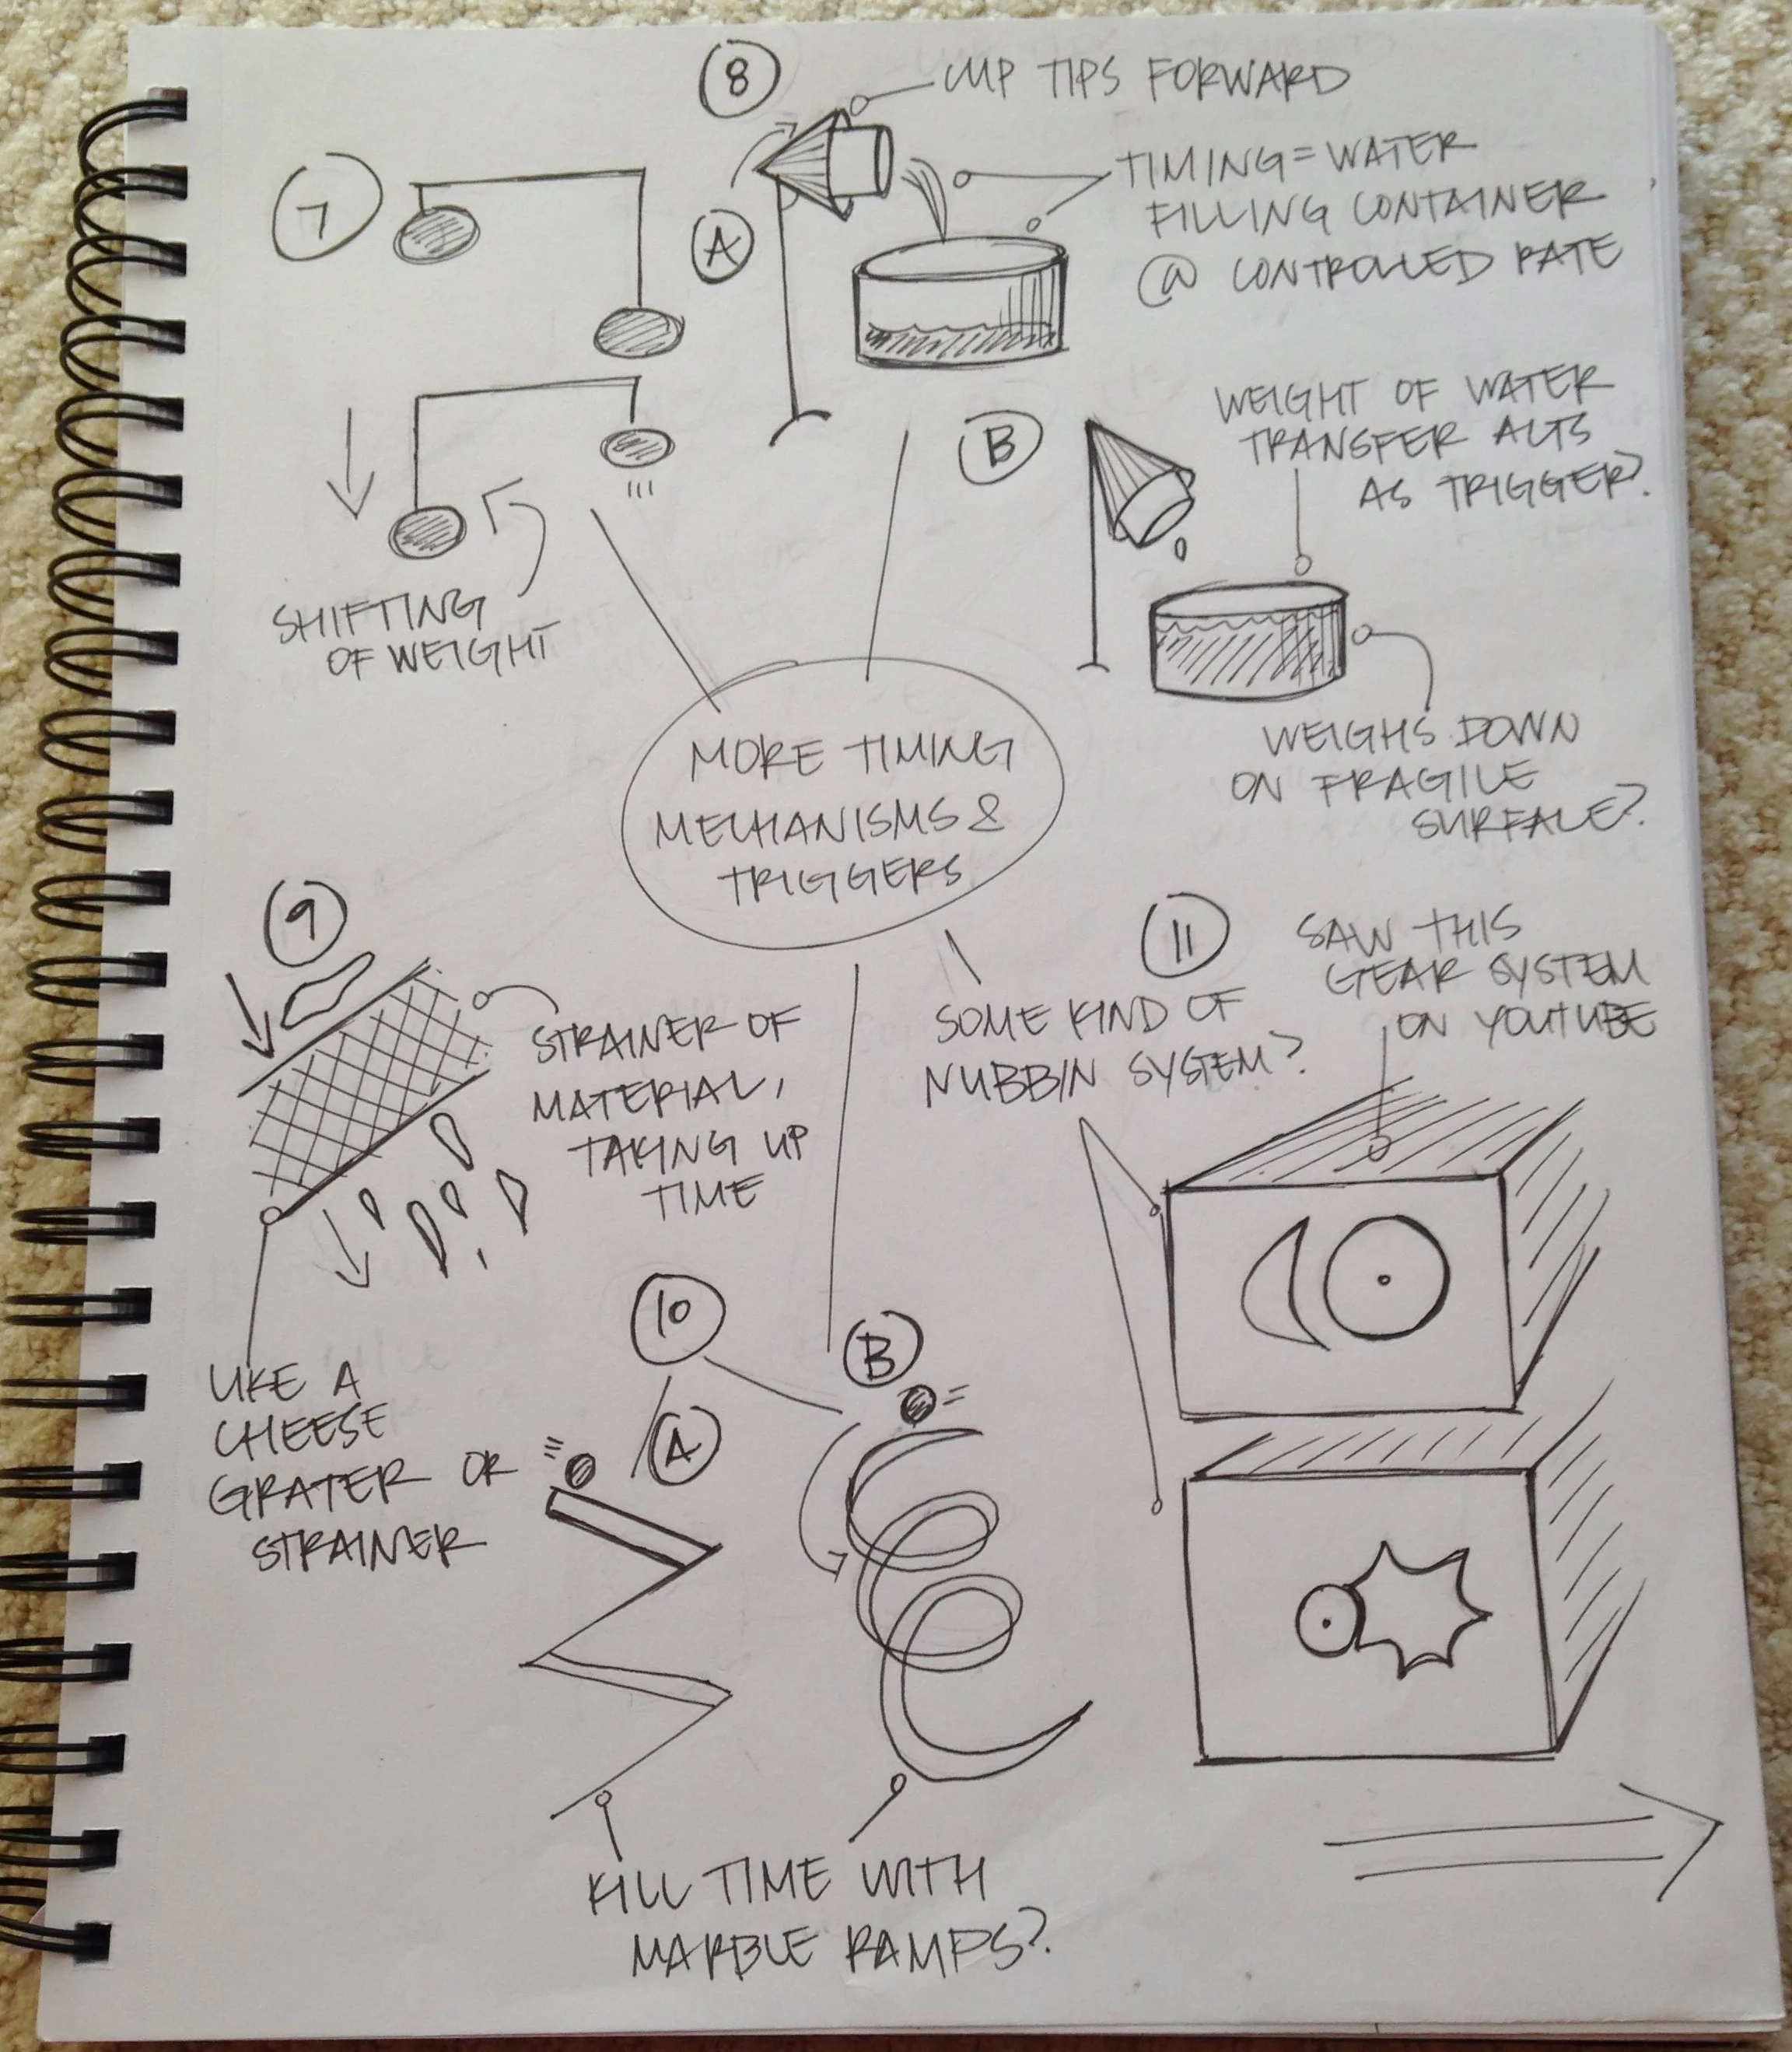 7
SHIFTING
OF WEIGHT
8
CUP TIPS FORWARD
A
TIMING = WATER
FILLING CONTAINER
@ CONTROLLED RATE
B
WEIGHT OF WATER
TRANSFER ACTS
AS TRIGGER?
WEIGHS DOWN
ON FRAGILE
SURFACE?
MORE TIMING
MECHANISMS &
TRIGGERS
9
STRAINER OF
MATERIAL,
TAKING UP
TIME
LIKE A
CHEESE
GRATER OR
STRAINER
10
A
B
KILL TIME WITH
MARBLE RAMPS?
11
SAW THIS
GEAR SYSTEM
ON YOUTUBE
SOME KIND OF
NUBBIN SYSTEM?